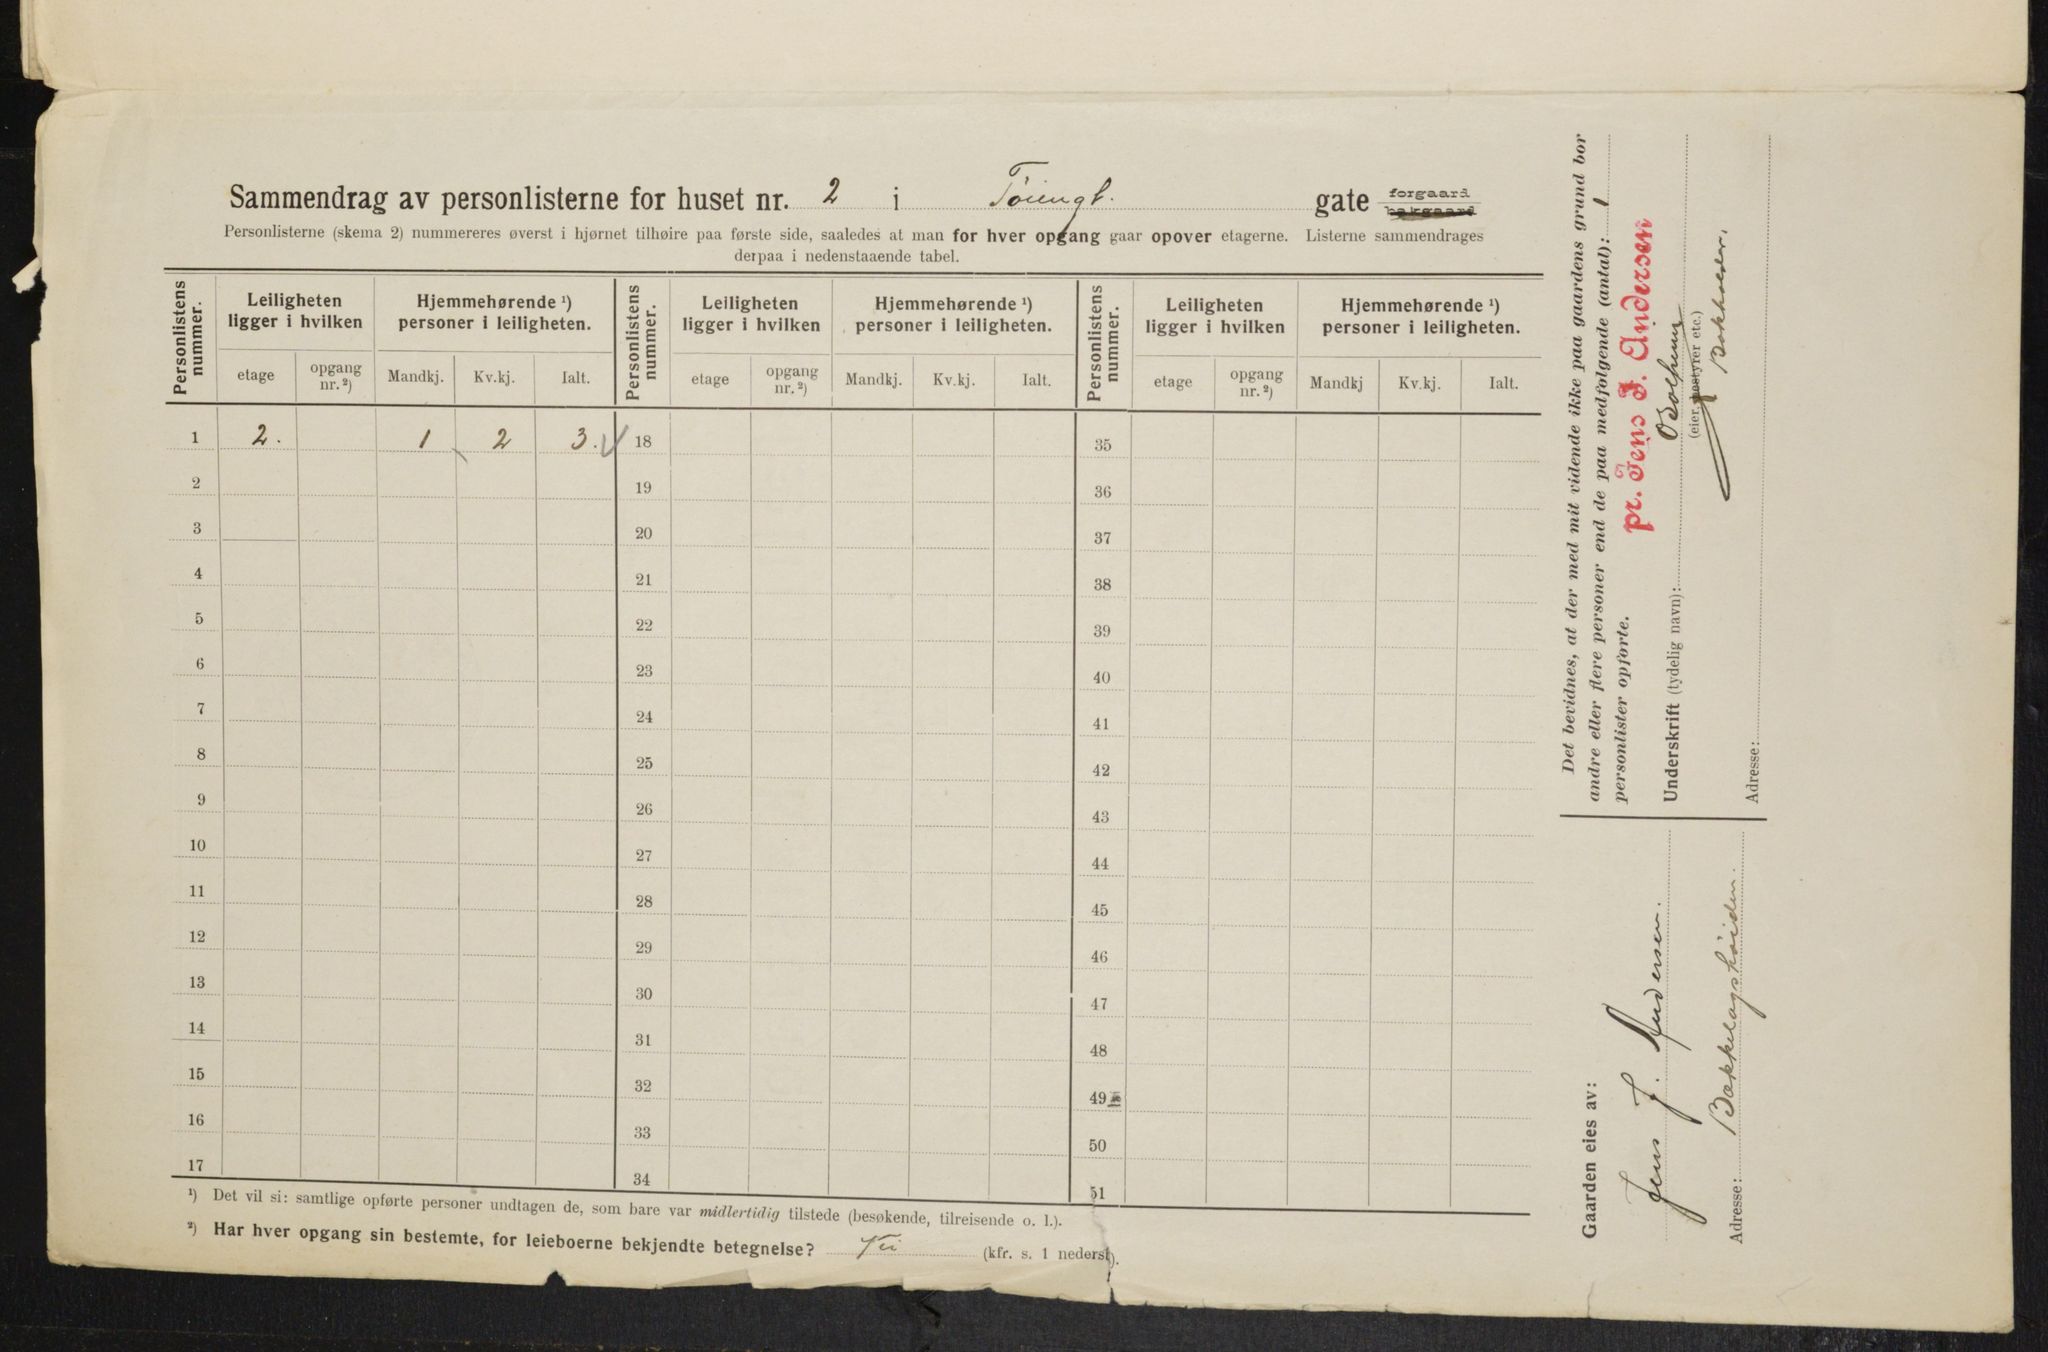 Sammendrag av personlisterne for huset nr. 2 i Töiengt. gate forgaard bakgaard
Personlisterne (skema 2) nummereres øverst i hjørnet tilhøire paa første side, saaledes at man for hver opgang gaar opover etagerne. Listerne sammendrages
derpaa i nedenstaaende tabel.
Personlistens nummer. Leiligheten ligger i hvilken Hjemmehørende ¹) personer i leiligheten. Personlistens nummer. Leiligheten ligger i hvilken Hjemmehørende ¹) personer i leiligheten. Personlistens nummer. Leiligheten ligger i hvilken Hjemmehørende ¹) personer i leiligheten.
etage opgang nr. ²) Mandkj. Kv.kj. Ialt. etage opgang nr. ²) Mandkj. Kv.kj. Ialt. etage opgang nr. ²) Mandkj Kv.kj. Ialt.
1 2. 1 2 3. 18 35
2 19 36
3 20 37
4 21 38
5 22 39
6 23 40
7 24 41
8 25 42
9 26 43
10 27 44
11 28 45
12 29 46
13 30 47
14 31 48
15 32 49
16 33 50
17 34 51
¹) Det vil si: samtlige opførte personer undtagen de, som bare var midlertidig tilstede (besøkende, tilreisende o. l.).
²) Har hver opgang sin bestemte, for leieboerne bekjendte betegnelse? (kfr. s. 1 nederst).
Det bevidnes, at der med mit vidende ikke paa gaardens grund bor
andre eller flere personer end de paa medfølgende (antal): 1
personlister opførte.
pr. Jens J. Andersen
Underskrift (tydelig navn):
(eier, bestyrer etc.)
Adresse:
Gaarden eies av:
Jens J. Andersen.
Adresse: Bækkelagshöiden.